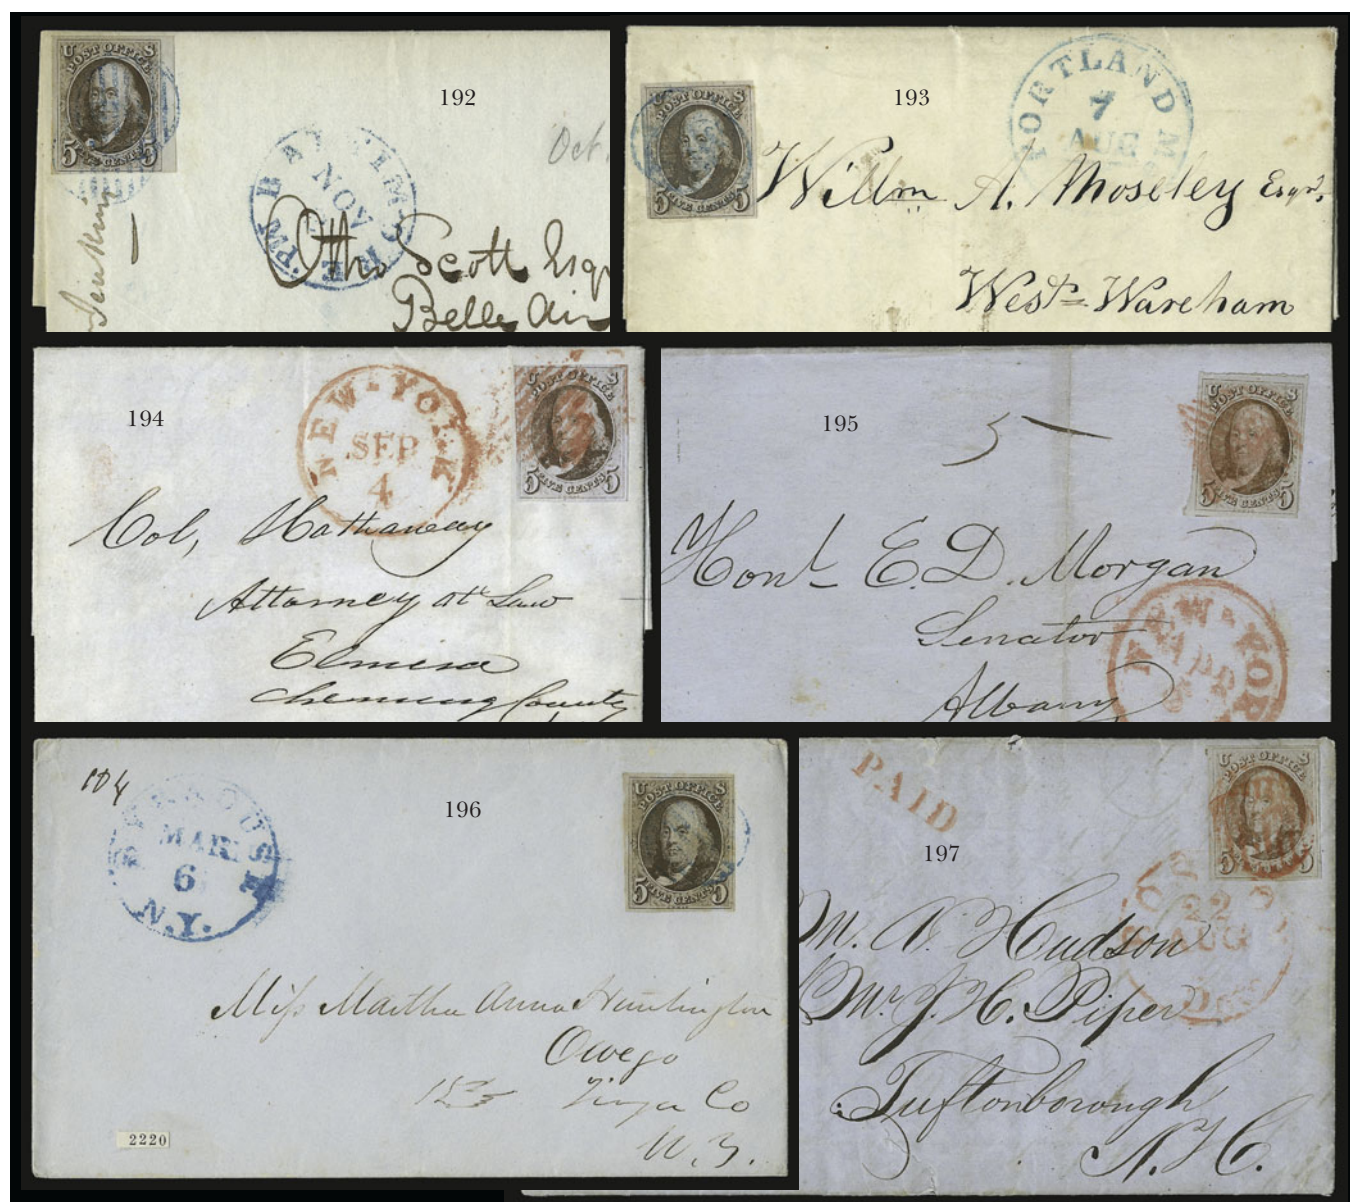 U POST OFFICE S
5 FIVE CENTS 5
192
Oct.
BALTIMORE PM
NOV
1
Otho Scott Esq
Belle Air
U POST OFFICE S
5 FIVE CENTS 5
193
PORTLAND ME
7
AUG
Willm A. Moseley Esqr.
West Wareham
194
NEW-YORK
SEP
4
U POST OFFICE S
5 FIVE CENTS 5
Col, Hathaway
Attorney at Law
Elmira
Chemung County
195
5
U POST OFFICE S
5 FIVE CENTS 5
Honl E. D. Morgan
Senator
Albany
NEW-YORK
APR
104
SYRACUSE N.Y.
MAR
6
196
U POST OFFICE S
5 FIVE CENTS 5
Miss Martha Anna Huntington
Owego
Tioga Co
N.Y.
2220
PAID
197
U POST OFFICE S
5 FIVE CENTS 5
BOSTON
22
AUG
M. N. Hudson
Mr. J. H. Piper
Tuftonborough
N.H.